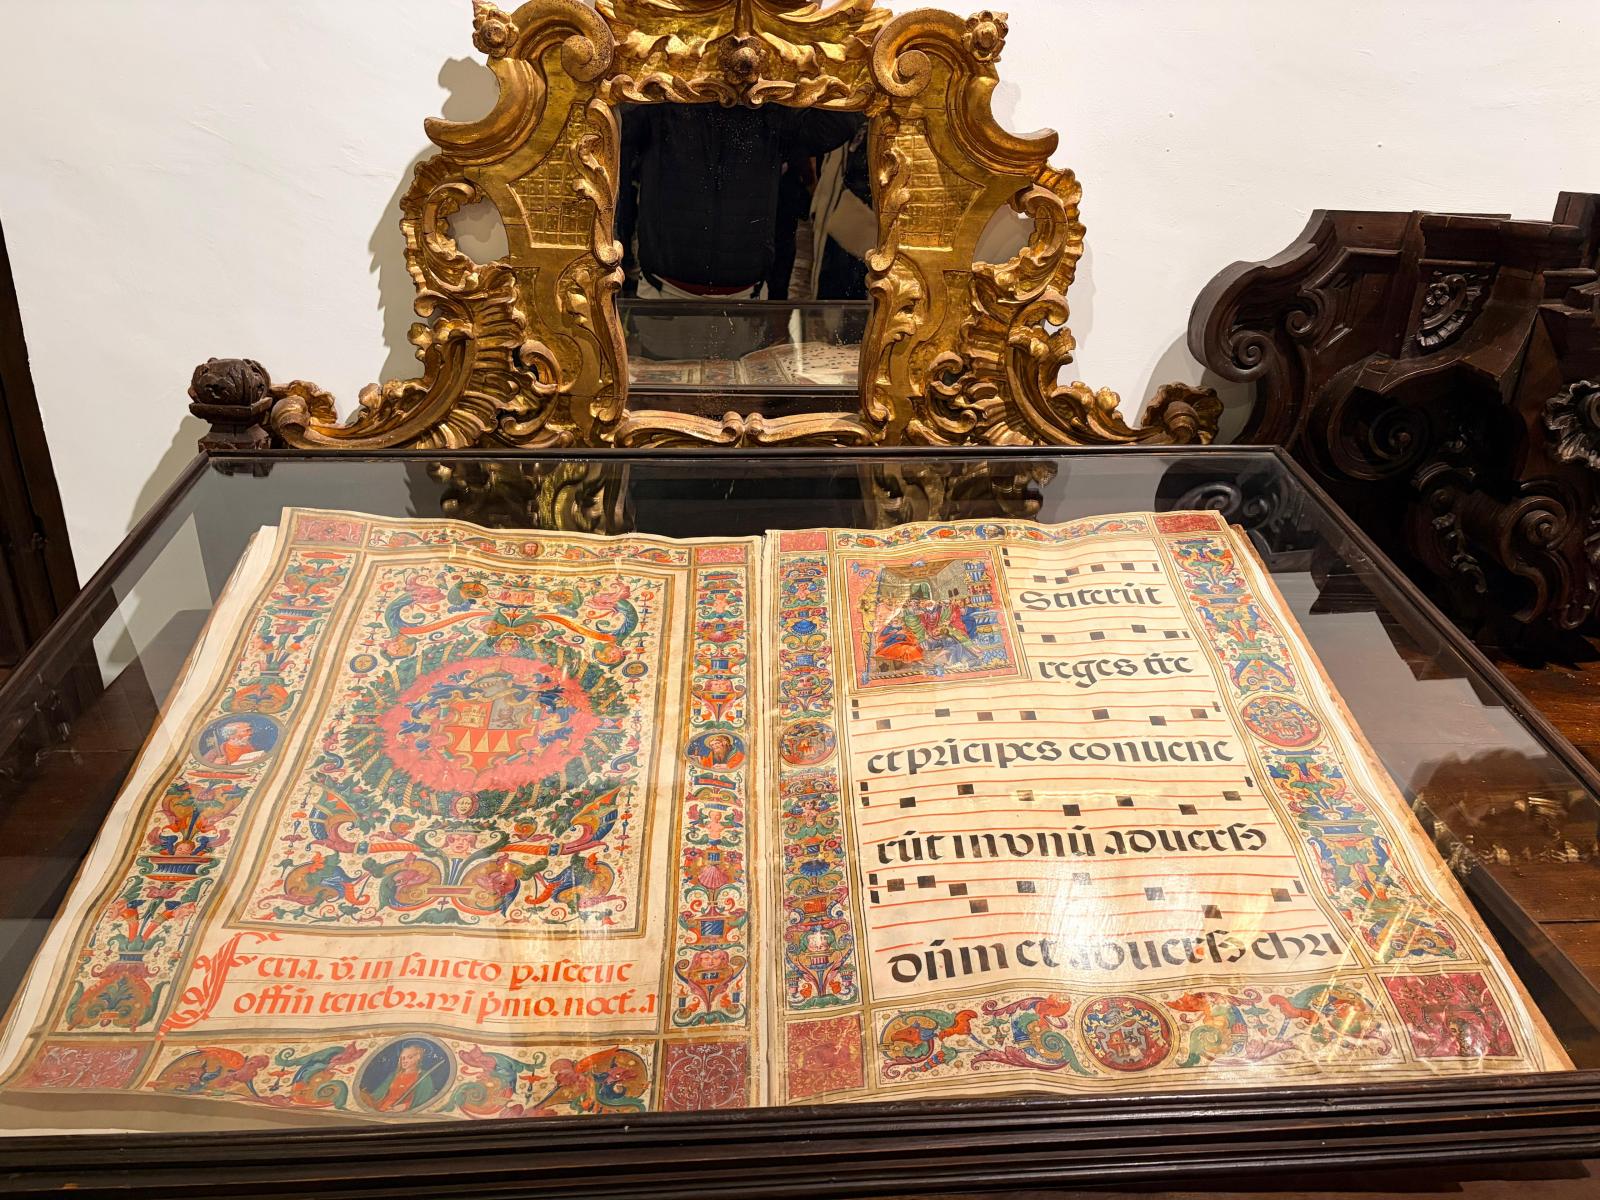 Feria. v̄. in sancto pasceue
offm̄ tenebrarū p̄mo. noct. a
Stiterūt
reges tre
et prīcipes conuene
rūt in vnū aduersꝰ
dn̄m et aduersꝰ chrī